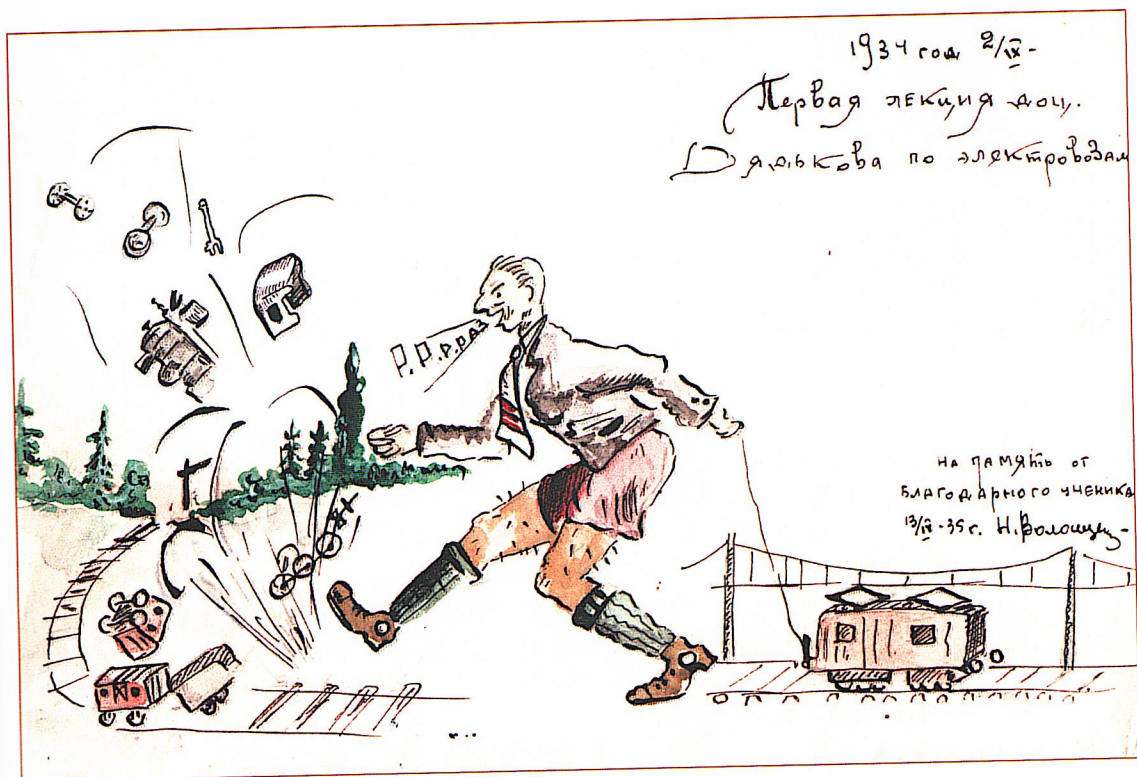 1934 год 2/IX-
Первая лекция доц.
Дядькова по электровозам
Р.Р.р.раз
на память от
благодарного ученика
13/IV-35г. Н. Волощец